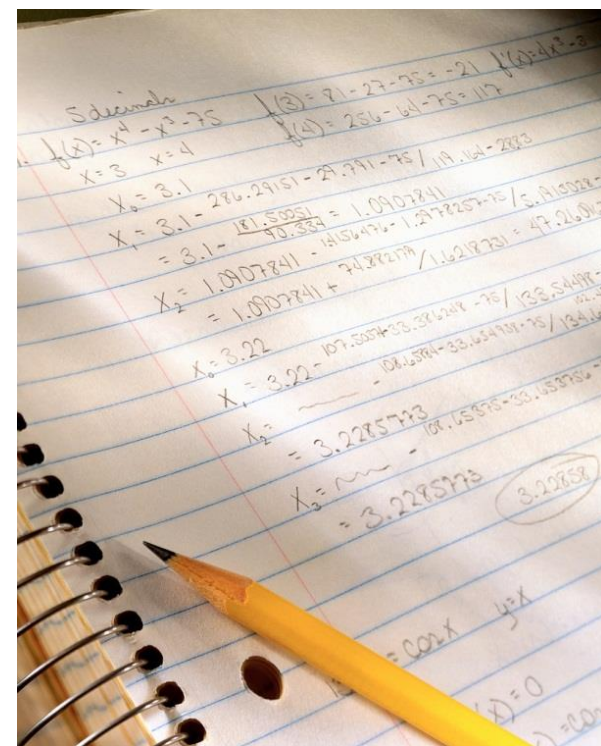 5 decimals
1. f(x) = x⁴ - x³ - 75 f(3) = 81 - 27 - 75 = -21 f'(x) = 4x³ - 3
x = 3 x = 4 f(4) = 256 - 64 - 75 = 117
X₀ = 3.1
X₁ = 3.1 - 286.29151 - 29.791 - 75 / 119.164 - 2883
= 3.1 - 181.50051 / 90.334 = 1.0907841
X₂ = 1.0907841 - 1.4156476 - 1.2978257 - 75 / 5.915028 -
= 1.0907841 + 74.882179 / 1.6218731 = 47.2609
X₀ = 3.22
X₁ = 3.22 - 107.5074 - 33.386248 - 75 / 133.54498 -
- 108.65884 - 33.654938 - 75 / 134.6
X₂ =
= 3.2285773 - 108.65375 - 33.653756 -
X₃ =
= 3.2285773 3.22858
= cosx y=x
(x) = 0
) = cos